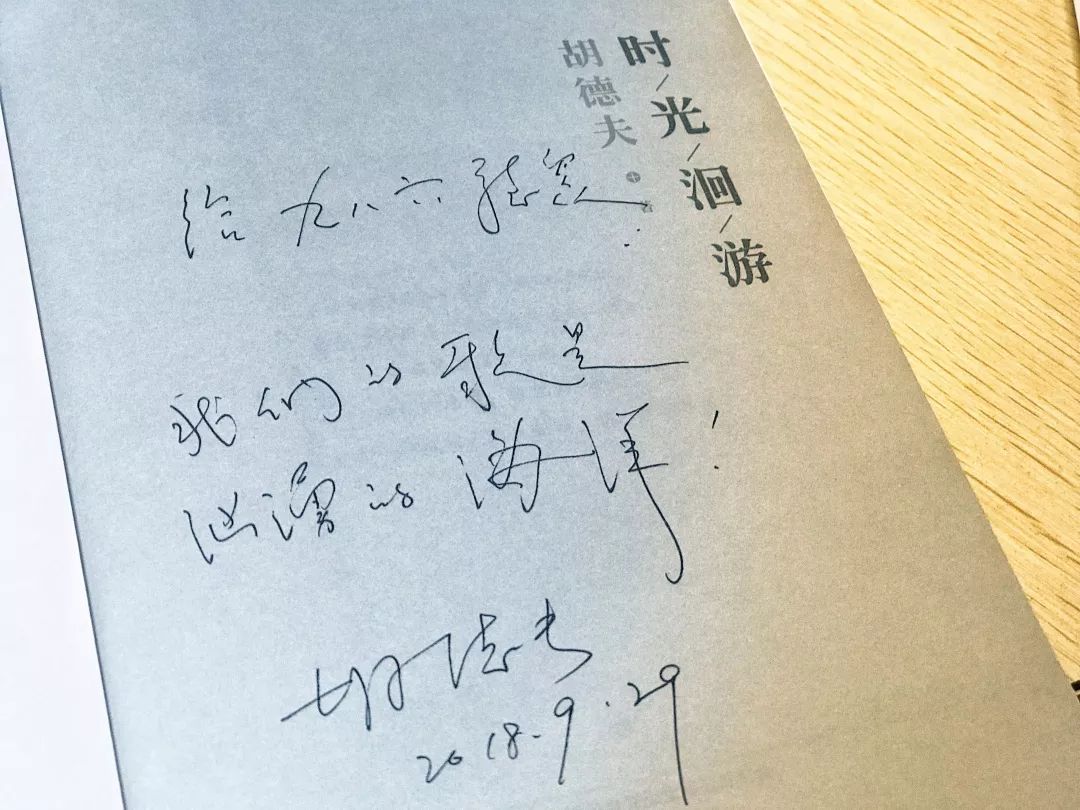 时/光/洄/游
胡德夫
给九八六聽眾:
我们的歌是
汹湧的海洋!
胡德夫
2018.9.29